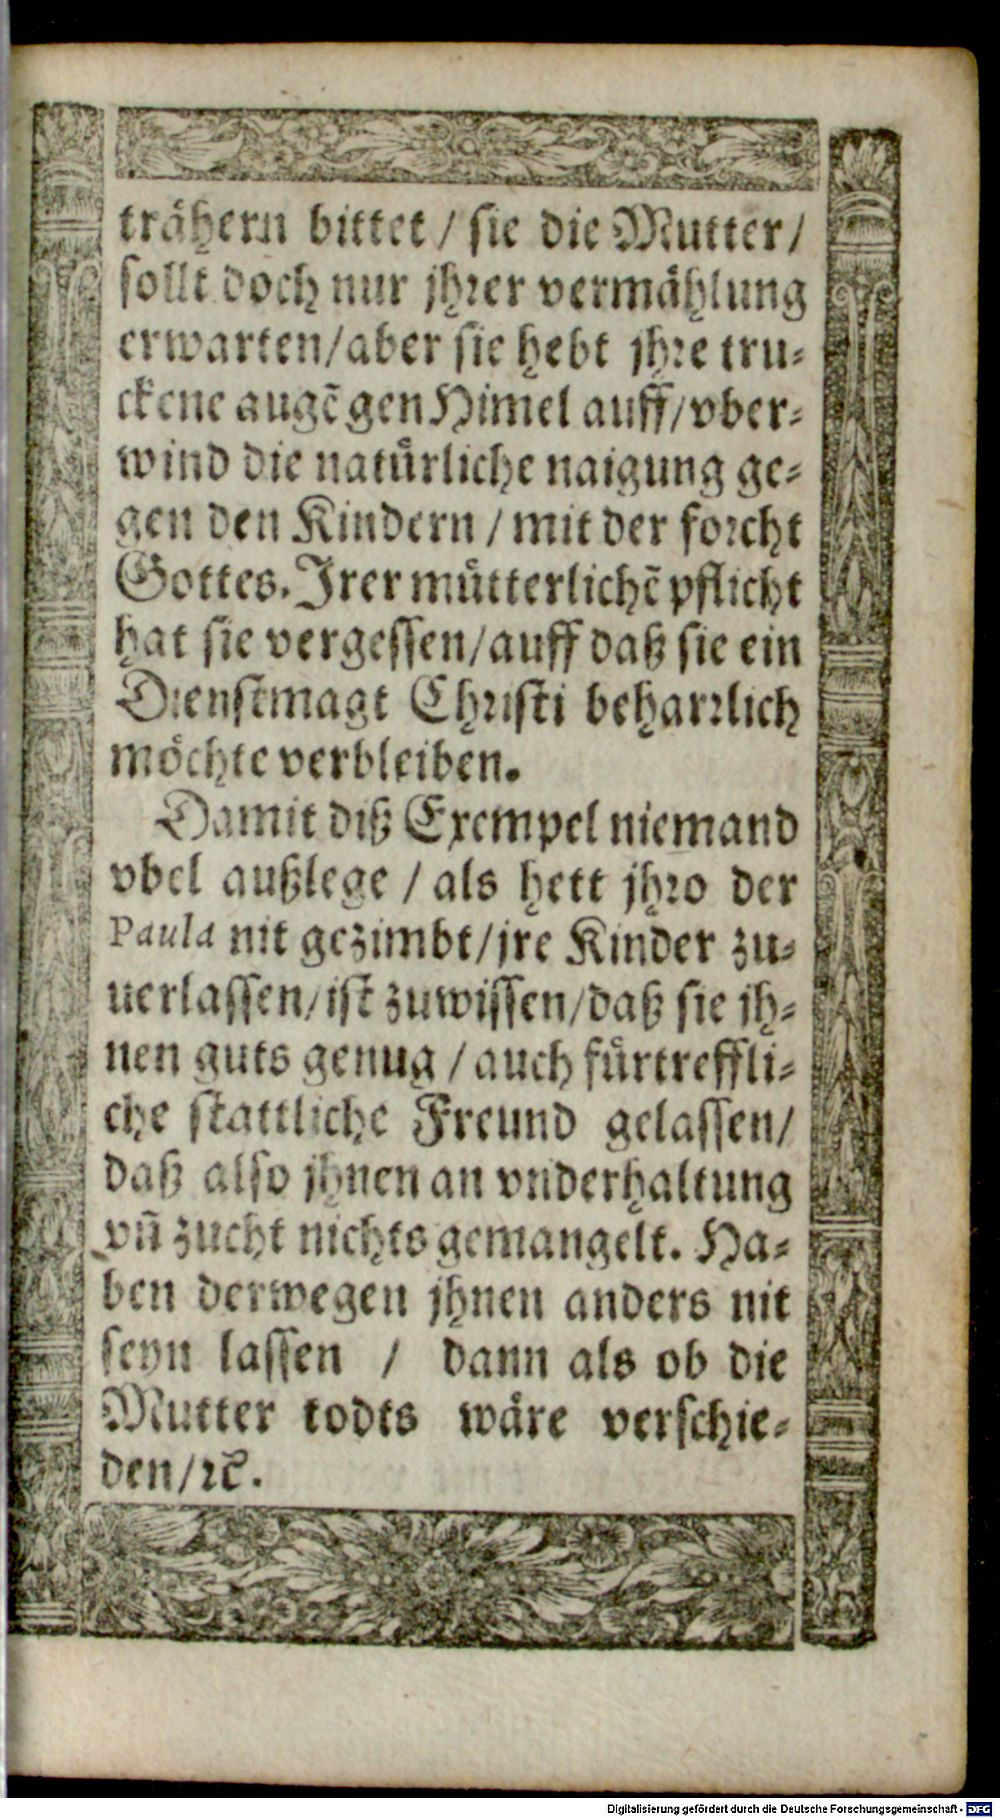 trähern bittet / sie die Mutter /
sollt doch nur jhrer vermählung
erwarten/aber sie hebt jhre tru-
ckene augē gen Himel auff/vber-
wind die natürliche naigung ge-
gen den Kindern / mit der forcht
Gottes. Irer mütterlichē pflicht
hat sie vergessen/auff daß sie ein
Dienstmagt Christi beharrlich
möchte verbleiben.
Damit diß Exempel niemand
vbel außlege / als hett jhro der
Paula nit gezimbt/jre Kinder zu-
uerlassen/ist zuwissen/daß sie jh-
nen guts genug / auch fürtreffli-
che stattliche Freund gelassen/
daß also jhnen an vnderhaltung
vn̄ zucht nichts gemangelt. Ha-
ben derwegen jhnen anders nit
seyn lassen / dann als ob die
Mutter todts wäre verschie-
den/ꝛc.
Digitalisierung gefördert durch die Deutsche Forschungsgemeinschaft - DFG